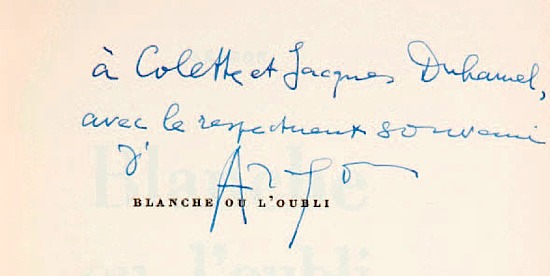 à Colette et Jacques Duhamel,
avec le respectueux souvenir
d'
Aragon
BLANCHE OU L'OUBLI
Blanche
ou l'oubli